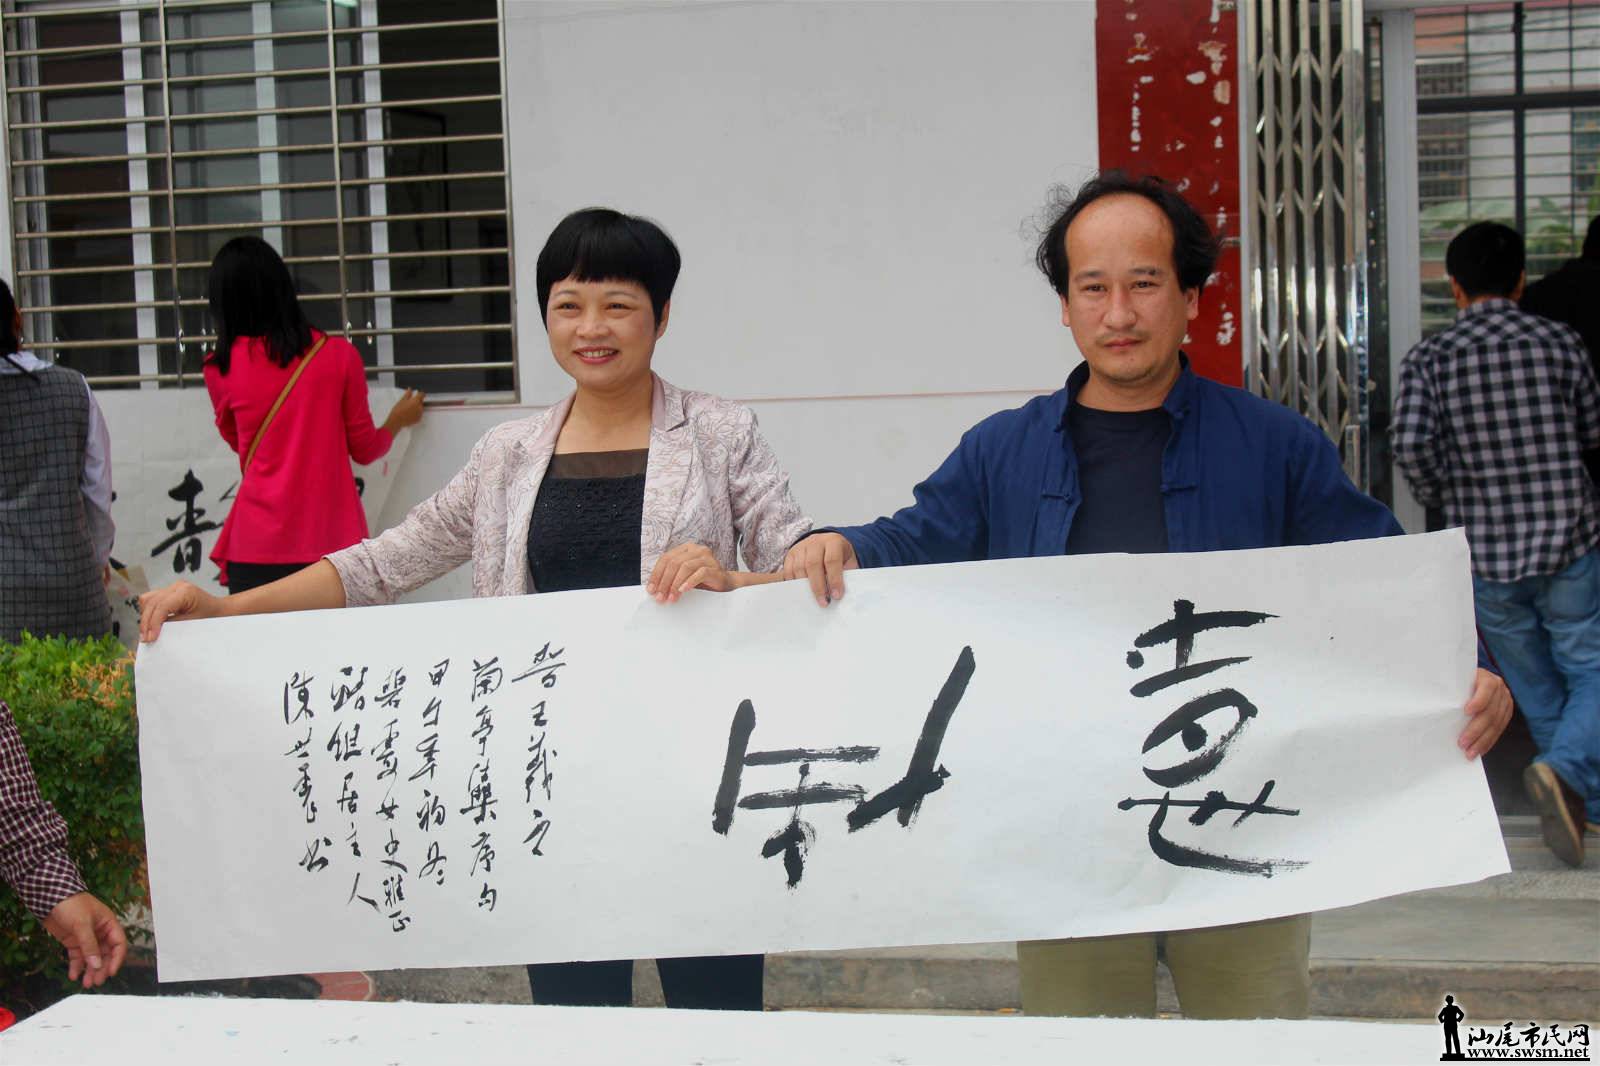 惠風
晋王羲之
蘭亭集序句
甲午年初冬
碧霞女史雅正
居主人
陳世 书
春
汕尾市民网
www.swsm.net